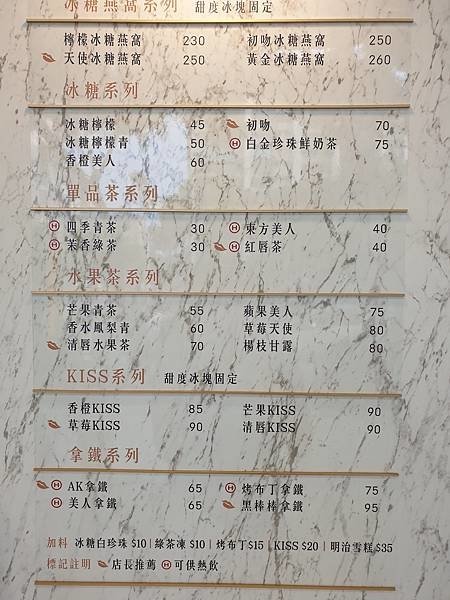 冰糖燕窩系列 甜度冰塊固定
檸檬冰糖燕窩 230 初吻冰糖燕窩 250
天使冰糖燕窩 250 黃金冰糖燕窩 260
冰糖系列
冰糖檸檬 45 初吻 70
冰糖檸檬青 50 Ⓗ 白金珍珠鮮奶茶 75
香橙美人 60
單品茶系列
Ⓗ 四季青茶 30 Ⓗ 東方美人 40
Ⓗ 茉香綠茶 30 Ⓗ 紅唇茶 40
水果茶系列
芒果青茶 55 蘋果美人 75
香水鳳梨青 60 草莓天使 80
清唇水果茶 70 楊枝甘露 80
KISS系列 甜度冰塊固定
香橙KISS 85 芒果KISS 90
草莓KISS 90 清唇KISS 90
拿鐵系列
Ⓗ AK拿鐵 65 Ⓗ 烤布丁拿鐵 75
Ⓗ 美人拿鐵 65 黑棒棒拿鐵 95
加料 冰糖白珍珠 $10 | 綠茶凍 $10 | 烤布丁$15 | KISS $20 | 明治雪糕 $35
標記註明 店長推薦 Ⓗ 可供熱飲